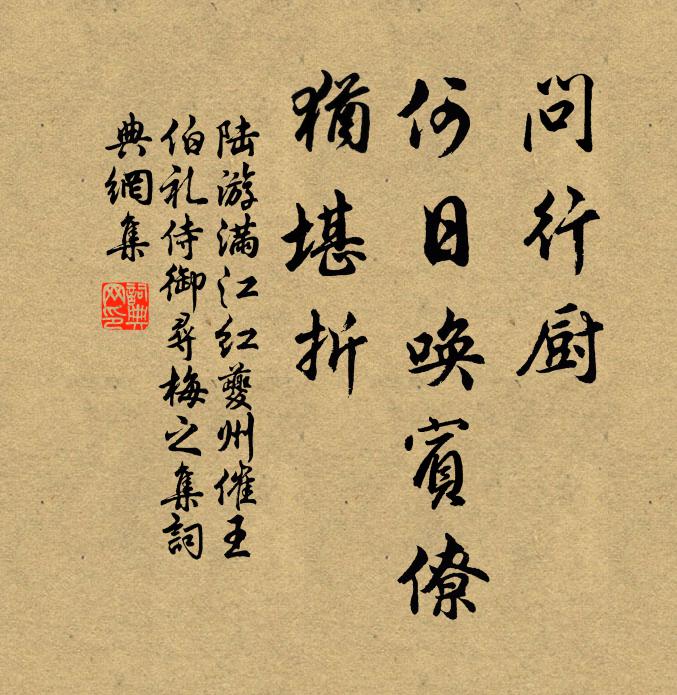 问行厨
何日唤宾僚
犹堪折
陆游满江红夔州催王
伯礼侍御寻梅之集词
典網集
詞典網印